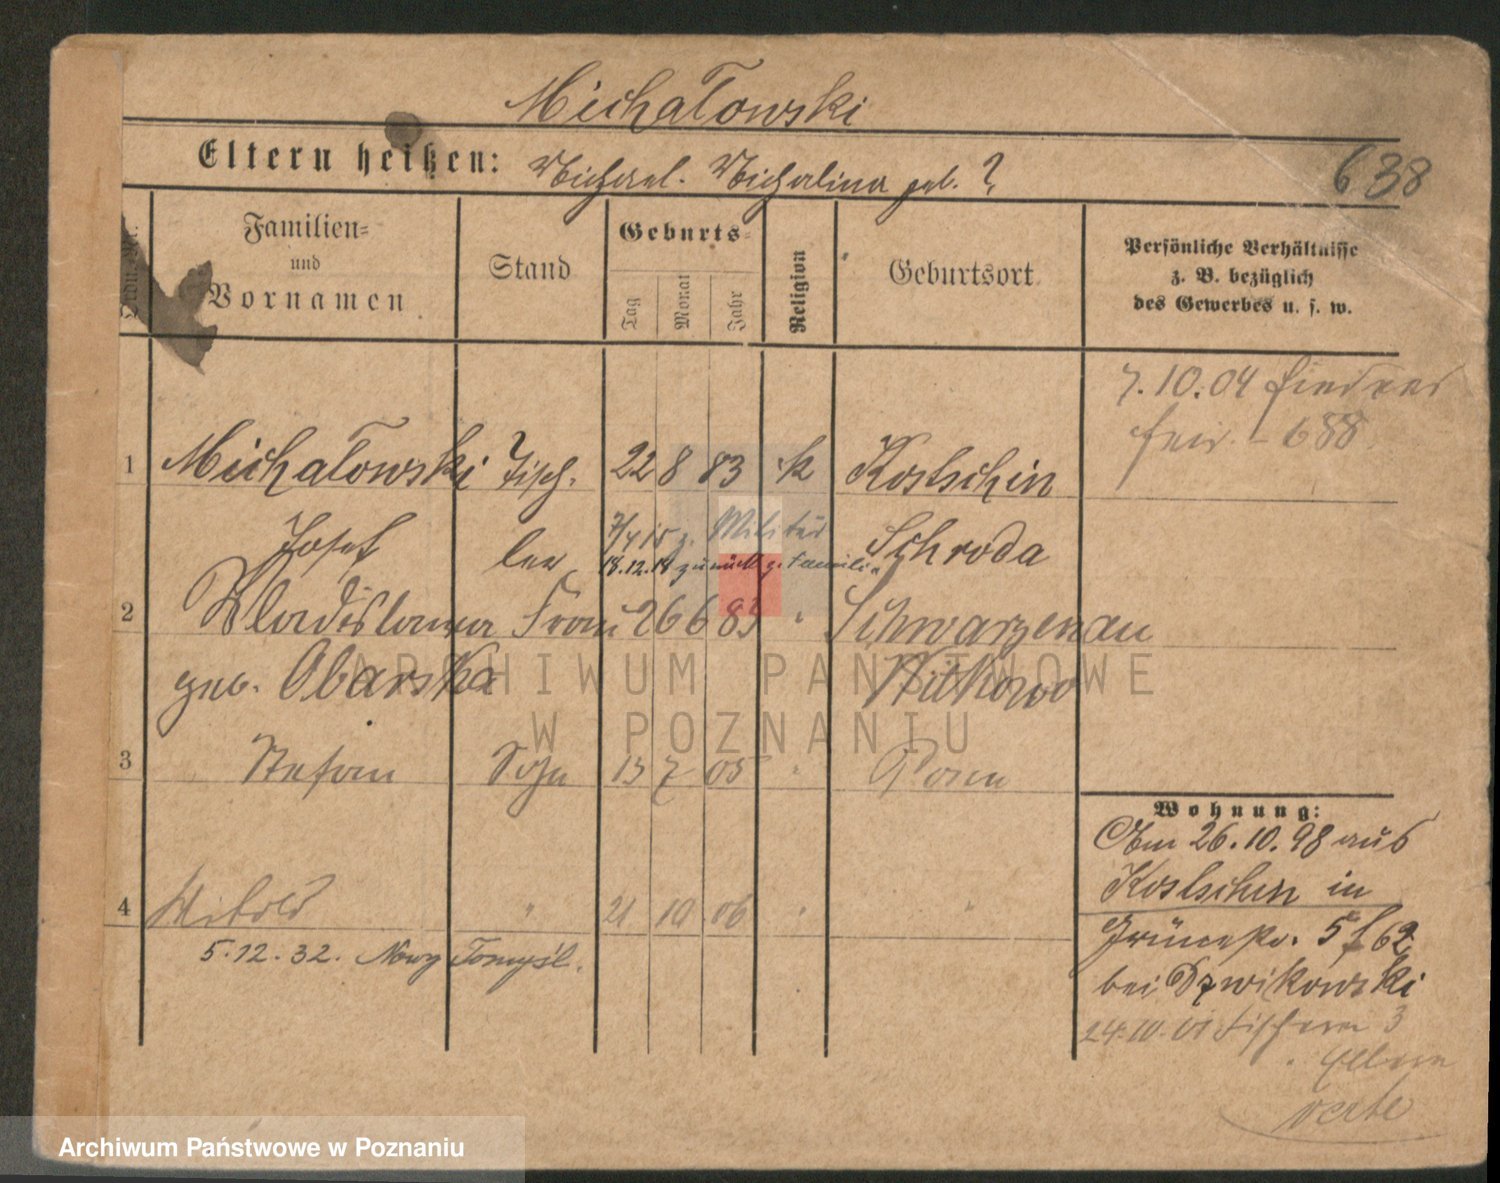 Michałowski
Eltern heißen: Michael. Michalina geb. ?
638
Lfdn. Nr.
Familien=
und
Vornamen
Stand
Geburts=
Tag
Monat
Jahr
Religion
Geburtsort
Persönliche Verhältnisse
z. B. bezüglich
des Gewerbes u. s. w.
7. 10. 04
688
1 Michałowski Tisch- 22 8 83 K Kostschin
Josef ler Schroda
z. Militär
18.12.18 zurück z. Familie
2 Wladislawa Frau 26 6 83 " Schwarzenau
geb. Obarska Witkowo
3 Stefan Sohn 13 7 05 " Posen
4 Witold " 21 10 06 " "
5.12.32. Nowy Tomyśl.
Wohnung:
Am 26.10.98 aus
Kostschin in
bei Dzwikowski
24.10.01 3
Eltern
verte
ARCHIWUM PAŃSTWOWE
W POZNANIU
Archiwum Państwowe w Poznaniu